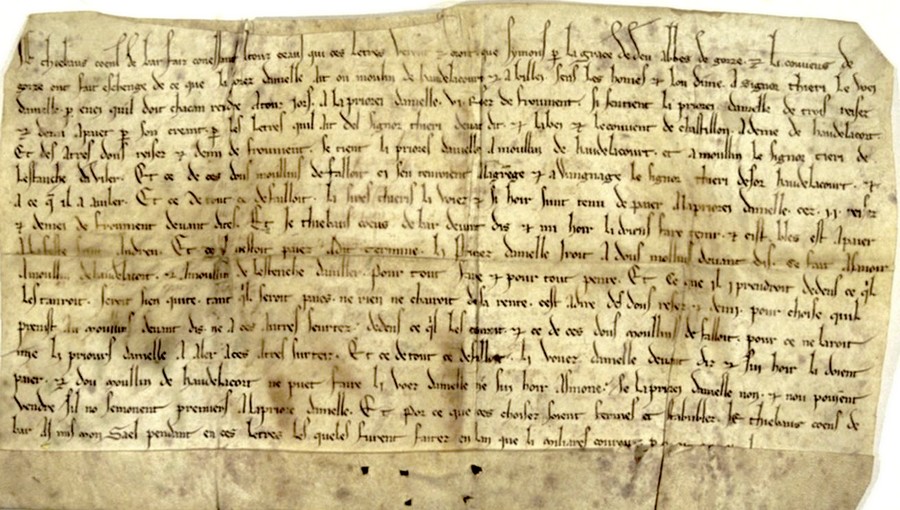 Je thiebaus coens de bar fais conessant a touz ceaus qui ces letres verront et oront que symons p la grace de deu abbes de gorze et li couvens de
gorze ont fait eschenge de ce que la priorez damelle ait on moulin de haudelacourt et a billei sens les homes et lou dime a signor thieri le voei
damelle p enci quil doit chacun rendre a touz jors a la priorei damelle vi resez de froument si sentient li priorez damelle de trois resez
et demi a paier p son creant p les letres quil ait del signor thieri devant dit et labei et le couvent de chastillon a deme de haudelacort
Et des autres dous resez et demi de froument se tient li priorez damelle a moullin de haudelacourt et a moullin le signor tieri de
lestanche daviler Et ce de ces dous moullins defalloit et sen revenroit a la grege et a waignage le signor thieri desor haudelacourt et
a ce q il a a viler Et ce de tout ce defalloit li sires thieris li voez et si hoir sunt tenu de paier a la priorei damelle cez ii resez
et demei de froument devant dites Et je thiebaus coens de bar devant dis et mi hoir li devens faire tenir et cist bles est a paier
a la feste saint andreu Et ce il nestoit paiez a dit termine li priorez damelle iroit a dous mollins devant dis ce fait a savoir
a moullin de haudelacort et a moullin de lestenche daviller pour tout faire et pour tout penre Et ce que il i prendroit dedens ce qil
les tanroit seroit sien quite tant qil seroit paies ne rien ne chauroit de sa rente cest a dire des dous resez et demi pour choise quil
preist au moullins devant dis ne a ces autres seurtez dedens ce qil les tanroit et ce de ces dous moullins defalloit pour ce ne lairoit
mie li priours damelle a aler a ces autres surtez Et ce de tout ce defalloit li vouez damelle devant dis et sui hoir li doient
paier et dou moullin de haudelacort ne puet faire li voez damelle ne sui hoir a smone se la priorei damelle non et non pouient
vendre sil no semonent premiers a la priore damelle Et por ce que ces choises soient fermes et stables je thiebaus coens de
bar ai mis mon sael pendant en ces letres les queles furent faites en lan que li miliares couroit p